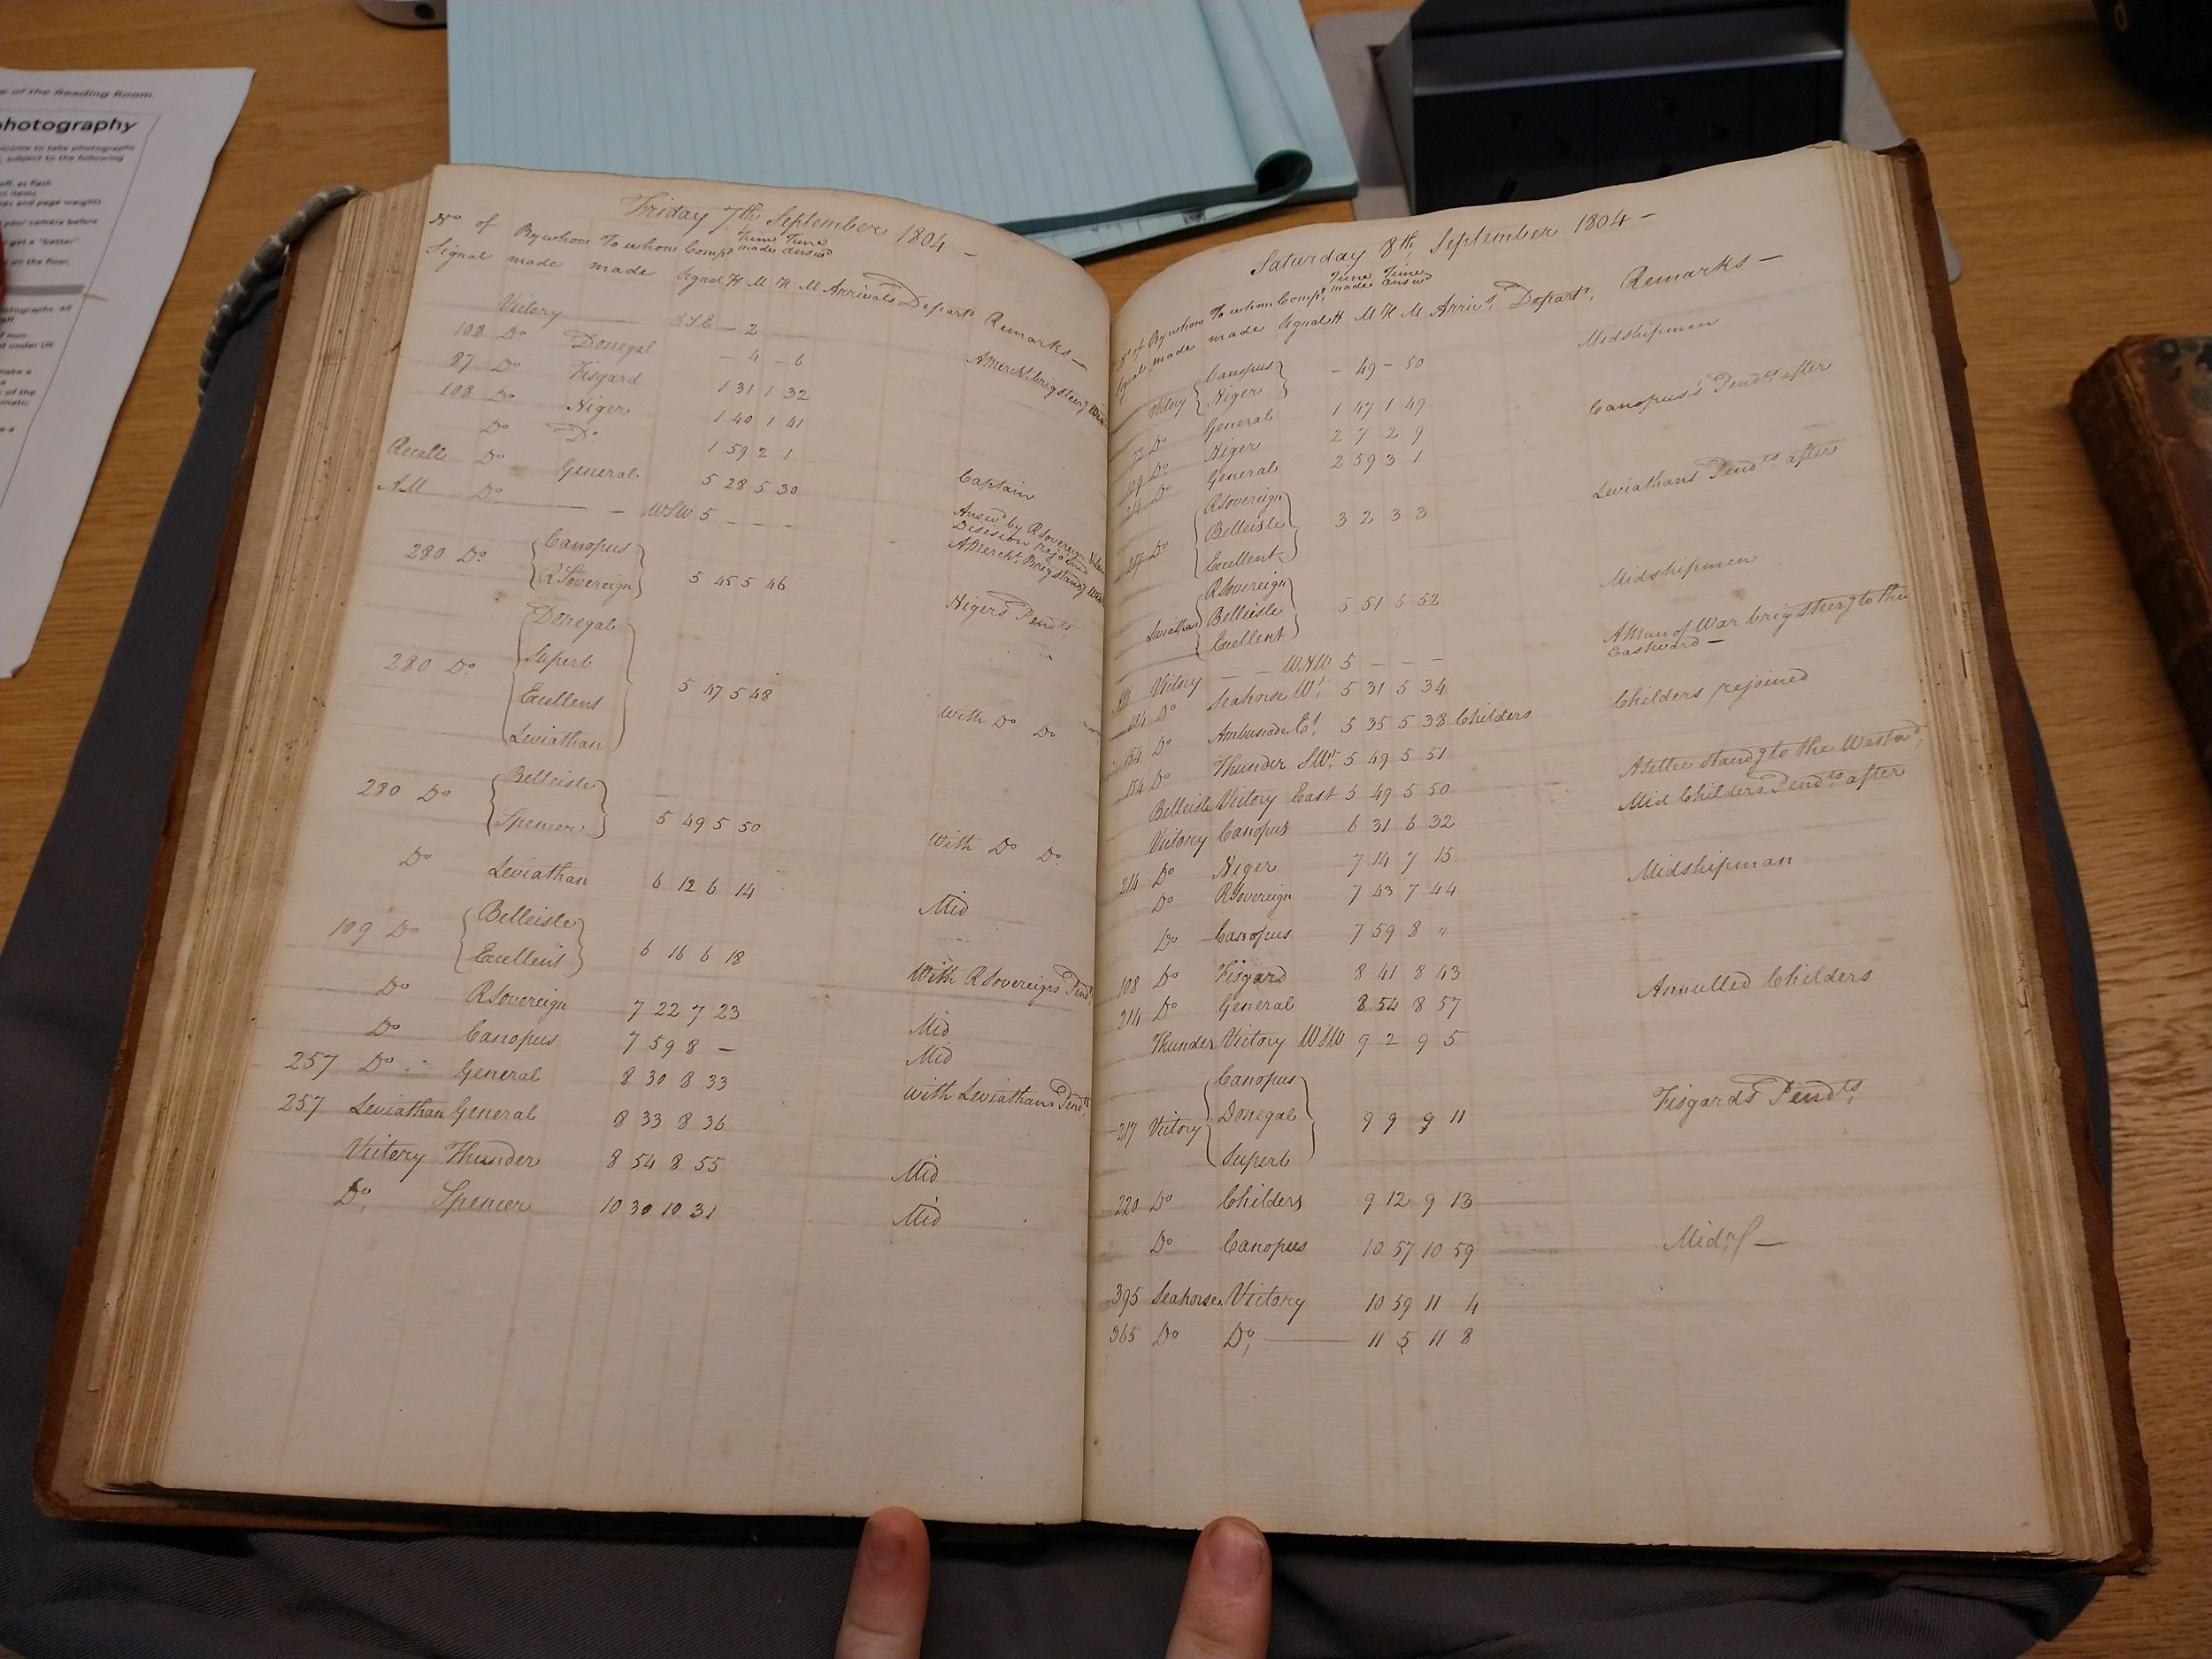 of the Reading Room.
photography
welcome to take photographs
subject to the following
off, as flash
items
and page weights
your camera before
get a "better"
on the floor,
photographs. All
non-
under UK
make a
of the
Friday 7th September 1804 –
No of By whom To whom Comps Time made Time answd
Signal made made Signal H M H M Arrivals Departs Remarks –
Victory ESE – 2
108 Do Donegal – 4 – 6 A Mercht brig steerg
87 Do Fisgard 1 31 1 32
108 Do Niger 1 40 1 41
Do Do 1 59 2 1 Captain
Recall Do General 5 28 5 30 Answd by R Sovereign Division rejoined
AM Do – WSW 5 – – – A Mercht Brig standg
280 Do { Canopus R Sovereign } 5 45 5 46 Nigers Pendts
280 Do { Donegal Superb Excellent Leviathan } 5 47 5 48 With Do Do
280 Do { Belleisle Spencer } 5 49 5 50 With Do Do
Do Leviathan 6 12 6 14 Mid
109 Do { Belleisle Excellent } 6 16 6 18 With R Sovereigns Pendts
Do R Sovereign 7 22 7 23 Mid
Do Canopus 7 59 8 – Mid
257 Do General 8 30 8 33 with Leviathans Pendts
257 Leviathan General 8 33 8 36
Victory Thunder 8 54 8 55 Mid
Do, Spencer 10 30 10 31 Mid
Saturday 8th, September 1804 –
No of By whom To whom Comps, Time made Time answd
Signal made made Signal H M H M Arrivs, Departs, Remarks –
Victory { Canopus Niger } – 49 – 50 Midshipmen
72 Do General 1 47 1 49 Canopus's Pendts after
109 Do Niger 2 7 2 9
214 Do General 2 59 3 1 Leviathans Pendts after
217 Do { R Sovereign Belleisle Excellent } 3 2 3 3
Leviathan { R Sovereign Belleisle Excellent } 5 51 5 52 Midshipmen
AM Victory – – WNW 5 – – – A Man of War brig steerg to the Eastward –
184 Do Seahorse Wt, 5 31 5 34
154 Do Ambuscade Et, 5 35 5 38 Childers Childers rejoined
154 Do Thunder SWt, 5 49 5 51
Belleisle Victory East 5 49 5 50 A Settee standg to the Westwd,
Victory Canopus 6 31 6 32 Mid Childers Pendts after
214 Do Niger 7 14 7 15
Do R Sovereign 7 43 7 44 Midshipman
Do Canopus 7 59 8 "
108 Do Fisgard 8 41 8 43
214 Do General 8 54 8 57 Annulled Childers
Thunder Victory WSW 9 2 9 5
217 Victory { Canopus Donegal Superb } 9 9 9 11 Fisgards Pendts,
220 Do Childers 9 12 9 13
Do Canopus 10 57 10 59 Mid,
395 Seahorse Victory 10 59 11 4
365 Do Do, 11 5 11 8